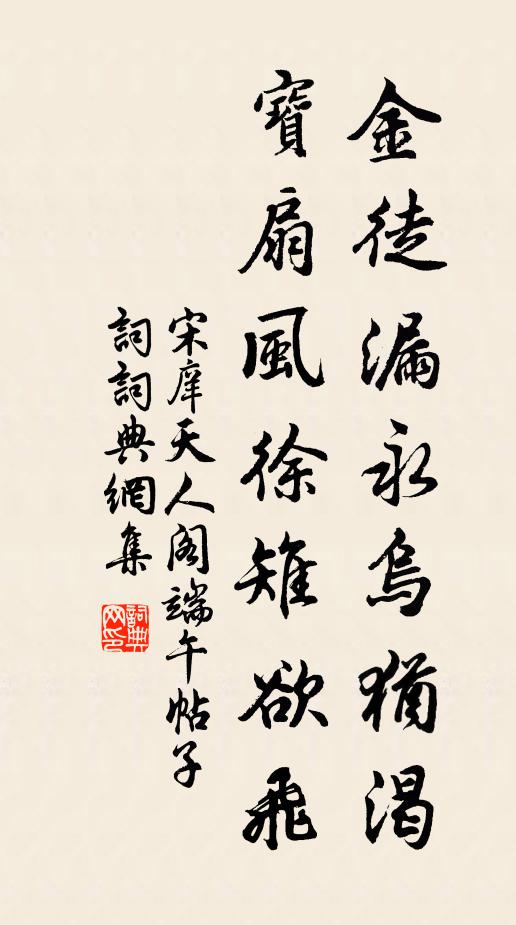 金徒漏永烏猶渴
寶扇風徐雉欲飛
宋庠天人阁端午帖子
詞詞典網集
詞典网印